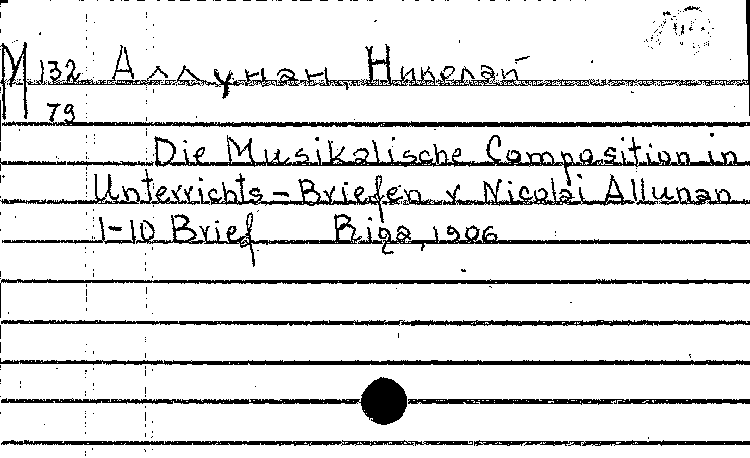 М 132 Аллунан, Николай
79
Die Musikalische Composition in
Unterrichts-Briefen v Nicolai Allunan
1-10 Brief Riga, 1906